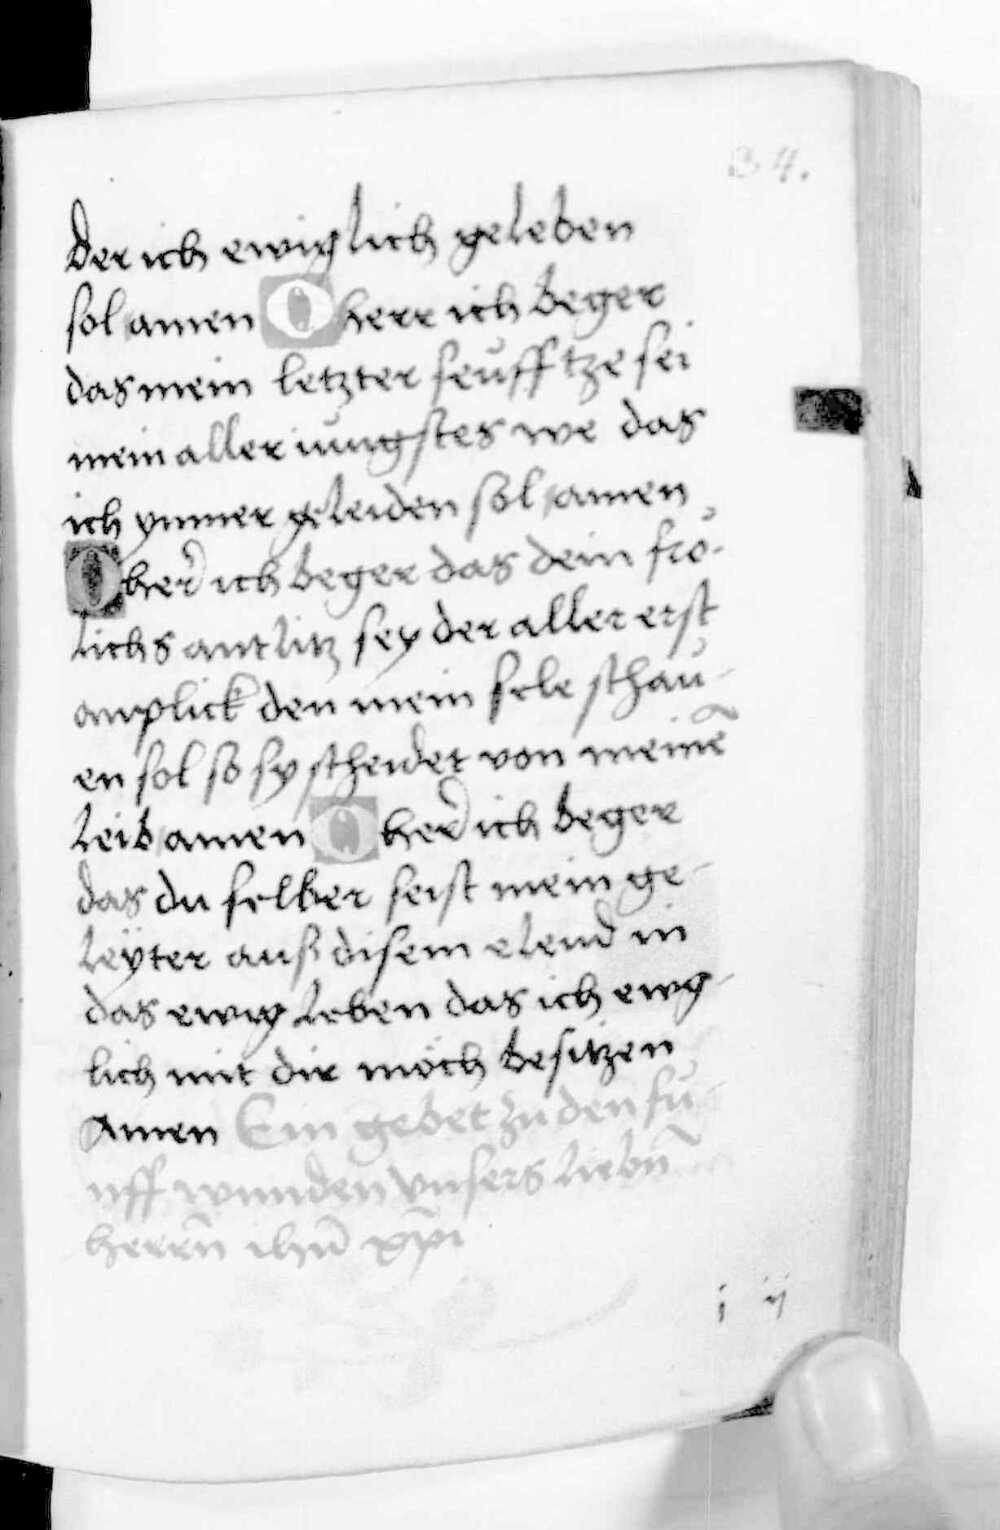 34.
der ich ewiglich geleben
sol amen O herr ich beger
das mein letzter seufftze sei
mein aller iungstes we das
ich ymmer geleiden sol amen
O her̄ ich beger das dein fro-
lichs antlitz sey der aller erst
anplick den mein sele schau-
en sol so sy scheidet von meinē
leib amen O her̄ ich beger
das du selber seist mein ge-
leyter auß disem elend in
das ewig leben das ich ewg-
lich mit dir möch besitzen
Amen Ein gebet zu den fu
nff wunden vnsers liebn̄
herrn̄ ihū xp̄i
i ij